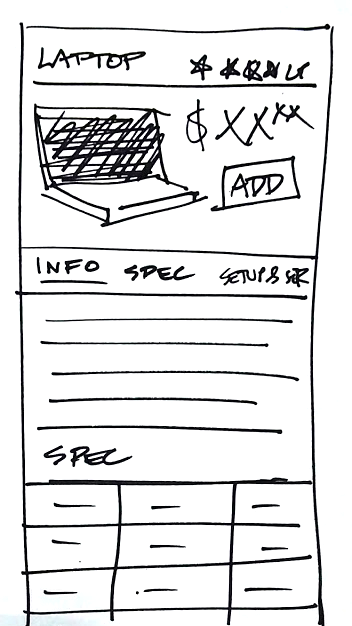 LAPTOP
$XX.XX
ADD
INFO SPEC SETUP &
SPEC